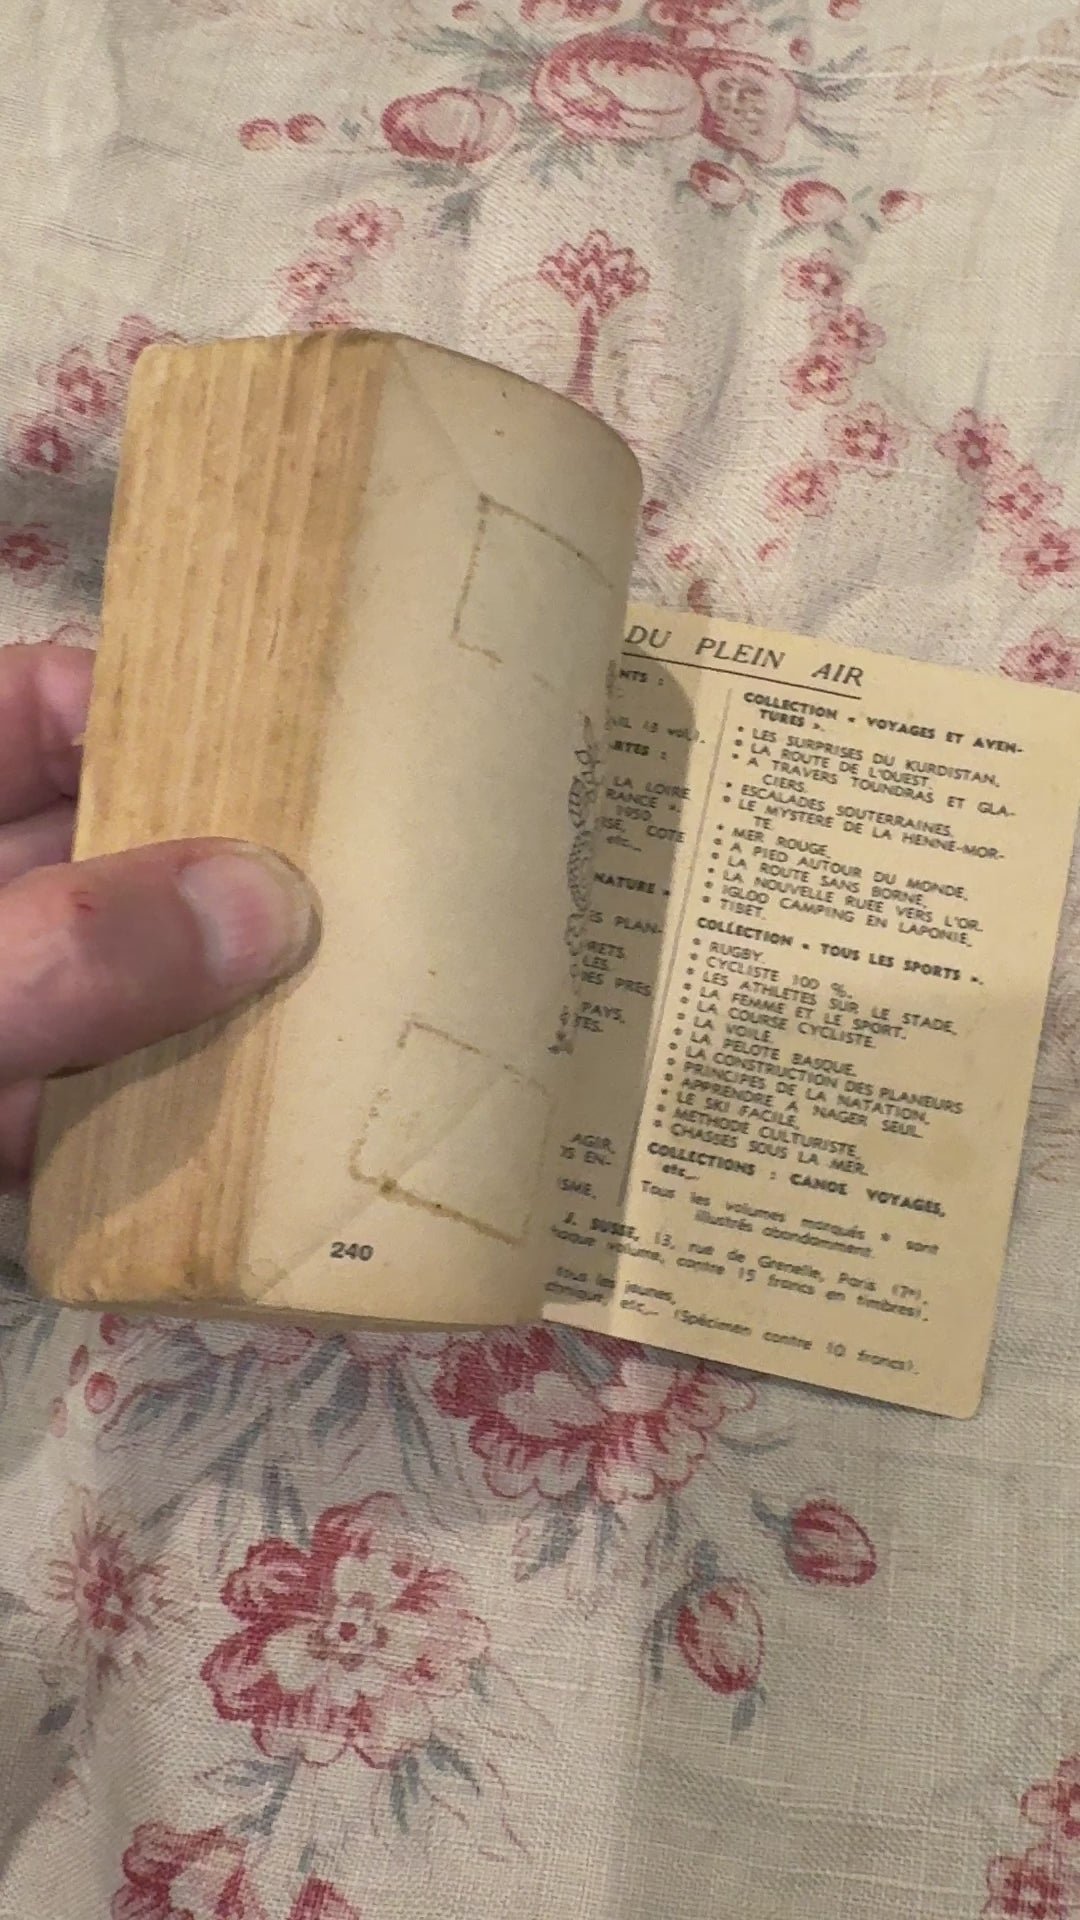 240
DU PLEIN AIR
NTS :
(3 vol.).
RTES :
LA LOIRE
RANCE ».
1950
COTE
etc...
NATURE »
ES PLAN-
RETS.
LES.
DES PRES
PAYS.
TES.
AGIR.
OS EN-
ISME.
COLLECTION « VOYAGES ET AVEN-
TURES ».
• LES SURPRISES DU KURDISTAN.
• LA ROUTE DE L'OUEST.
• A TRAVERS TOUNDRAS ET GLA-
CIERS.
• ESCALADES SOUTERRAINES.
• LE MYSTERE DE LA HENNE-MOR-
TE.
• MER ROUGE.
• A PIED AUTOUR DU MONDE.
• LA ROUTE SANS BORNE.
• LA NOUVELLE RUEE VERS L'OR.
• IGLOO CAMPING EN LAPONIE.
• TIBET.
COLLECTION « TOUS LES SPORTS ».
• RUGBY.
• CYCLISTE 100 %.
• LES ATHLETES SUR LE STADE.
• LA FEMME ET LE SPORT.
• LA COURSE CYCLISTE.
• LA VOILE.
• LA PELOTE BASQUE.
• LA CONSTRUCTION DES PLANEURS
• PRINCIPES DE LA NATATION.
• APPRENDRE A NAGER SEUL.
• LE SKI FACILE.
• METHODE CULTURISTE.
• CHASSES SOUS LA MER.
COLLECTIONS : CANOE VOYAGES,
etc...
Tous les volumes marqués • sont
illustrés abondamment.
J. SUSSE, 13, rue de Grenelle, Paris (7e).
haque volume, contre 15 francs en timbres).
tous les jeunes,
chnique, etc... (Spécimen contre 10 francs).